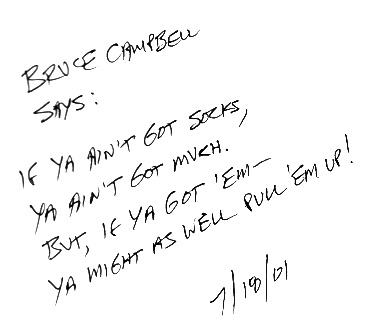 BRUCE CAMPBELL
SAYS:
IF YA AIN'T GOT SOCKS,
YA AIN'T GOT MUCH.
BUT, IF YA GOT 'EM—
YA MIGHT AS WELL PULL 'EM UP!
7/18/01